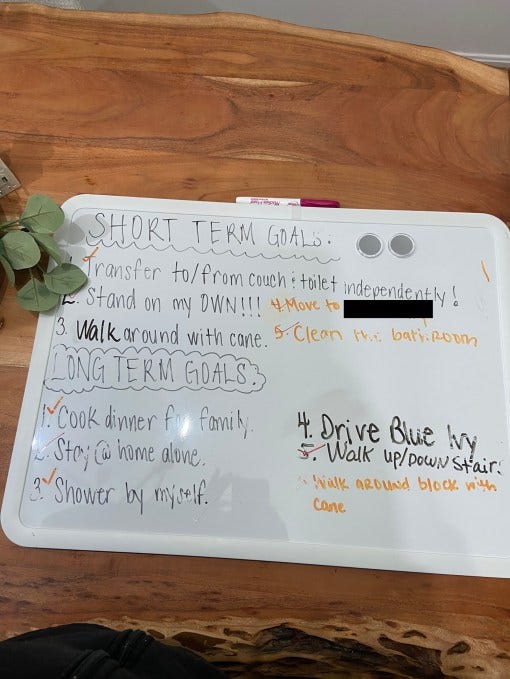 SHORT TERM GOALS:
1. Transfer to/from couch & toilet independently!
2. Stand on my OWN!!!
4. Move to
3. Walk around with cane.
5. Clean the bathroom
LONG TERM GOALS:
1. Cook dinner for family.
2. Stay @ home alone.
3. Shower by myself.
4. Drive Blue Ivy
5. Walk up/down stairs
Walk around block with
cane